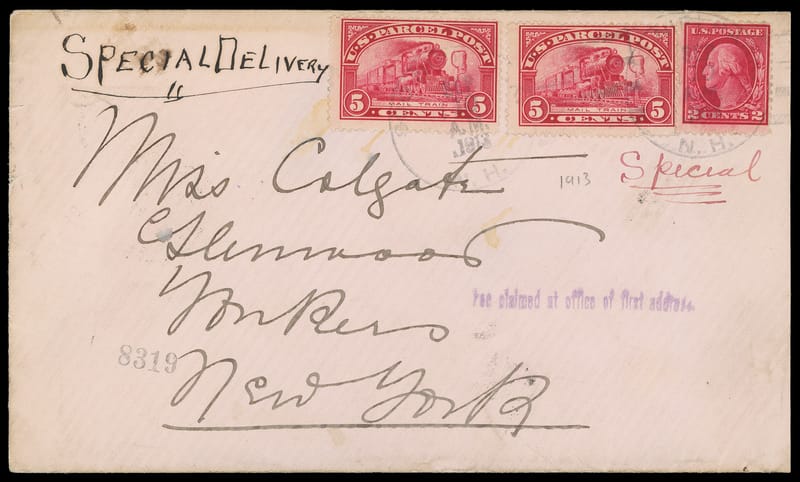 SPECIAL DELIVERY
U.S. PARCEL POST
5 MAIL TRAIN 5
CENTS
U.S. PARCEL POST
5 MAIL TRAIN 5
CENTS
U.S. POSTAGE
2 CENTS 2
1913
N. H.
N. H.
Miss Colgate
1913
Special
Glenwood
Fee claimed at office of first address.
Yonkers
8319
New York